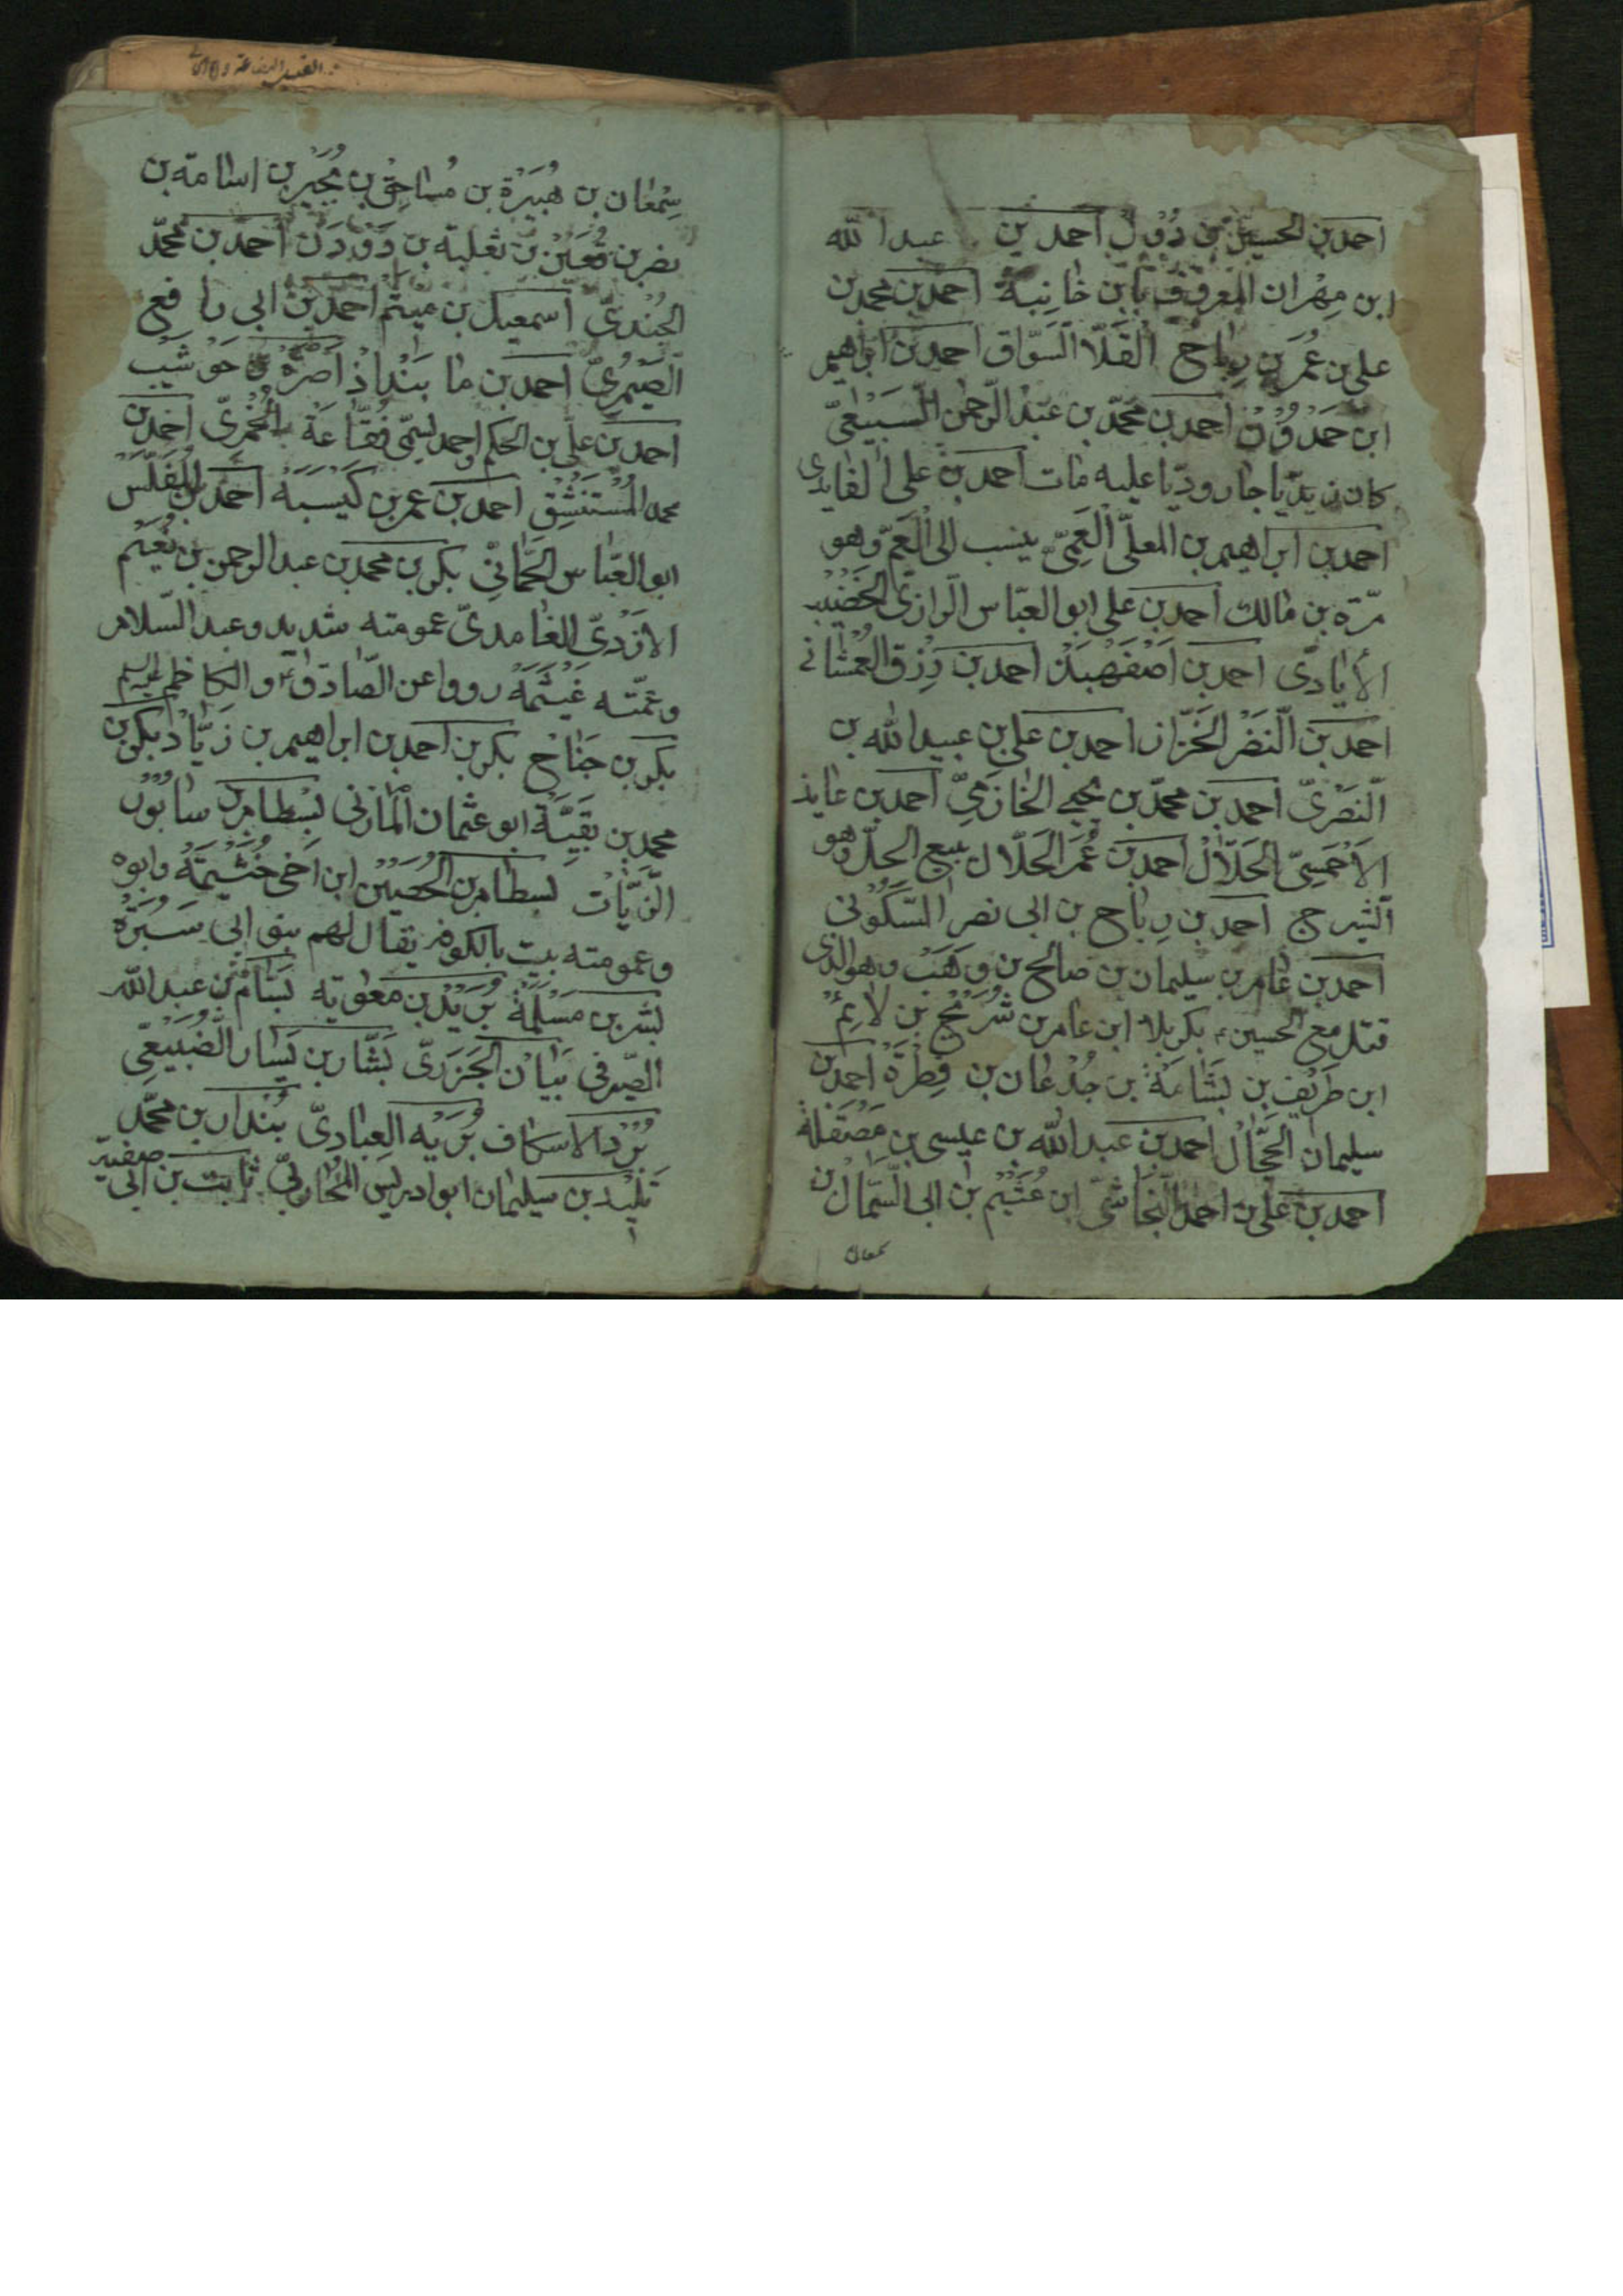 احمد بن الحسين بن دُؤل احمد بن عبد الله
ابن مِهْران المعروف بابن خانِبة احمد بن محمد بن
على بن عُمَر بن رِباح القَلّا السَوّاق احمد بن ابراهيم
ابن حَمْدُوْن احمد بن محمّد بن عبْد الرّحمن السَبيْعىّ
كان زيديّا جاروديّا عليه مات احمد بن على الفايدى
احمد بن ابراهيم بن المعلّى العَمِّىّ ينسب الى العَمّ وهو
مرّة بن مالك احمد بن على ابو العبّاس الرازىّ الخَضيْب
الأيادى احمد بن اَصْفَهْبَدْ احمد بن رِزْق الغُمْشانى
احمد بن النَضْر الخَزّاز احمد بن على بن عبيد الله بن
النَضْرىّ احمد بن محمّد بن يحيى الخازمىّ احمد بن عايذ
الاَحْمَسِىّ الحَلّالْ احمد بن عُمَر الحَلّال يبيع الحلّ وهو
الشيرج احمد بن رِباح بن ابى نصر السَّكُوْنى
احمد بن عامر بن سليمان بن صالح بن وَهَبْ وهو الذى
قتل مع الحسين بكربلا ابن عامر بن شُرَيْح بن لائم
ابن طَريْف بن بَشّامَة بن جُدْعان بن فِطْرَة احمد بن
سليمان الحَجّالْ احمد بن عبد الله بن عيسى بن مَصْقَلة
احمد بن على بن احمد النَجاشى ابن عُثَيْم بن ابى السَّمّالْ بن
سمعان
سِمْعان بن هُبَيْرَة بن مُساحِقْ بن بُجَيْر بن اسامة بن
نصر بن قُعَيْن بن ثعلبة بن دَوْدَن احمد بن محمّد
الجُنْدىّ اسمعيل بن ميتم احمد بن ابى رافع
الصَيْمرِىّ احمد بن ما بَنْداذ اَصْرَم بن حَوْشَبْ
احمد بن علّى بن الحكم احمد يسمّى فُقّاعَة الخُمْرىّ احمد بن
محمد المُسْتَنْشِقْ احمد بن عمر بن كَيْسَبَة احمد بن المُفَلّسْ
ابو العبّاس الحَمّانِىّ بكر بن محمد بن عبد الرحمن بن نُعَيْم
الازْدىّ الغامدىّ عمومته شديد وعبد السّلام
وعمّته غَيْثَمَة رووا عن الصّادق و الكاظم عليه السلم
بكر بن جَناح بكر بن احمد بن ابراهيم بن زيّاد بكر بن
محمد بن بَقيَّة ابو عثمان المازنى بسْطام بن سابُوْر
الزَيّات بسطام بن الحُصَيْن ابن اَخى خُثَيْمَة وابوه
وعمومته بيت بالكوفه يقال لهم بنو ابى سَبُرَة
بشر بن مَسْلَمَة بُرَيْد بن معوية بسّام بن عبد الله
الصّيرفى بَيانْ الجَزَرىّ بَشّار بن يَسار الضُبَيْعىّ
بُرْد الاسكاف بُرَيْه العِبادىّ بُنْدار بن محمّد
تَلِيْد بن سليمان ابو ادريس المُحاربىّ ثابت بن ابى صفيّة